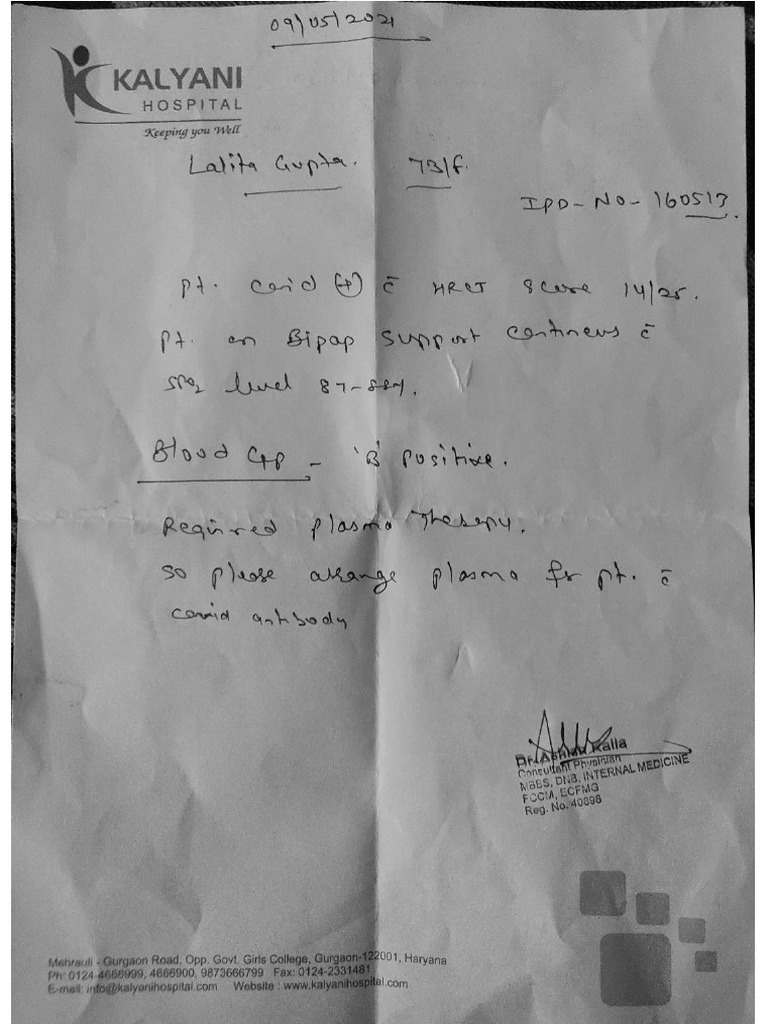 09/05/2021
KALYANI
HOSPITAL
Keeping you Well
Lalita Gupta. 73/f.
IPD-NO-160513.
pt. covid (+) c̄ HRCT Score 14/25.
pt. on Bipap support contineus c̄
SPO2 level 87-88%.
Blood Gp - 'B' positive.
Required plasma Therapy.
so please arrange plasma for pt. c̄
covid antibody
Dr. Ashish Kalla
Consultant Physician
MBBS, DNB, INTERNAL MEDICINE
FCCM, ECFMG
Reg. No. 40898
Mehrauli - Gurgaon Road, Opp. Govt. Girls College, Gurgaon-122001, Haryana
Ph: 0124-4666999, 4666900, 9873666799 Fax: 0124-2331481
E-mail: info@kalyanihospital.com Website : www.kalyanihospital.com